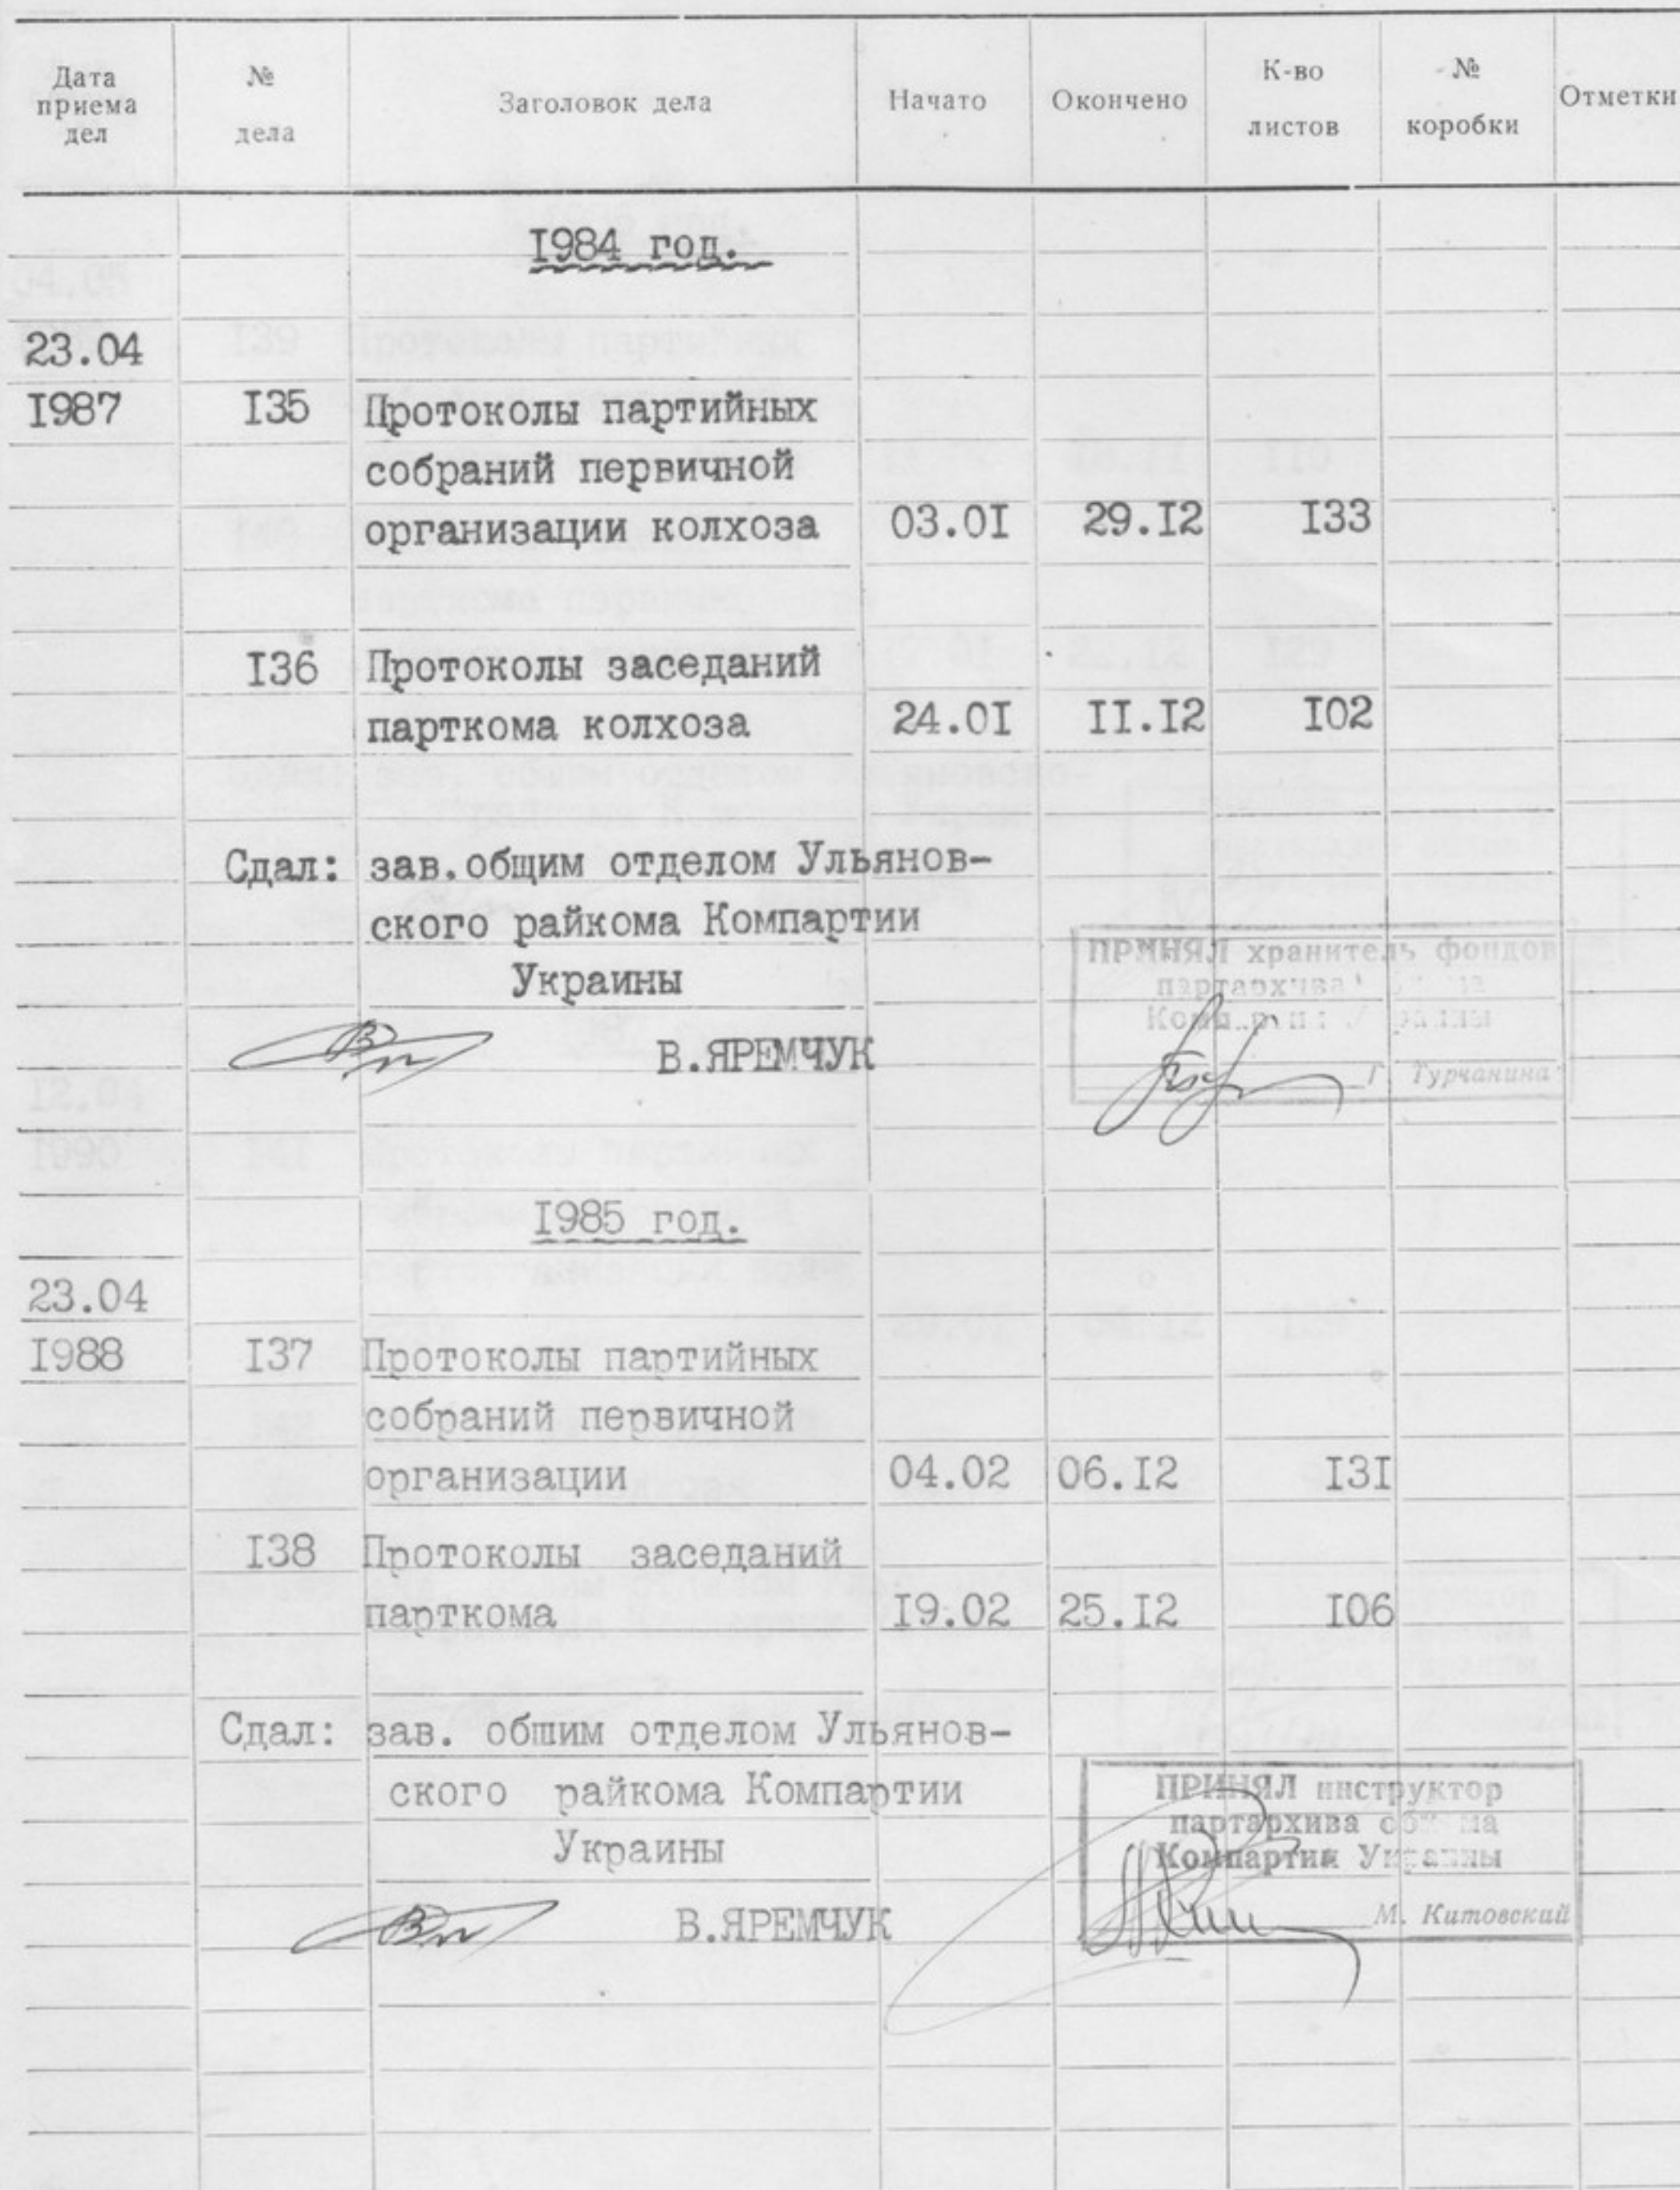 Дата приема дел № дела Заголовок дела Начато Окончено К-во листов № коробки Отметки
1984 год.
23.04
1987 135 Протоколы партийных
собраний первичной
организации колхоза 03.01 29.12 133
136 Протоколы заседаний
парткома колхоза 24.01 11.12 102
Сдал: зав.общим отделом Ульянов-
ского райкома Компартии
Украины
В.ЯРЕМЧУК
ПРИНЯЛ хранитель фондов
партархива
Г. Турчанина
1985 год.
23.04
1988 137 Протоколы партийных
собраний первичной
организации 04.02 06.12 131
138 Протоколы заседаний
парткома 19.02 25.12 106
Сдал: зав. общим отделом Ульянов-
ского райкома Компартии
Украины
В.ЯРЕМЧУК
ПРИНЯЛ инструктор
партархива
Компартии Украины
М. Китовский